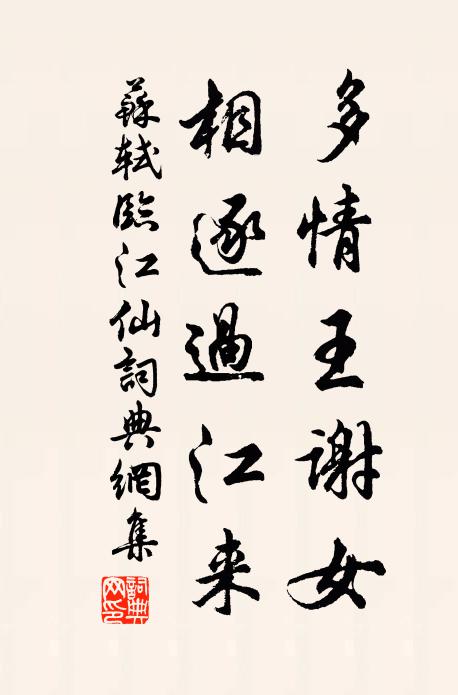 多情王謝女
相逐過江来
蘇軾臨江仙詞典網集
詞典網印